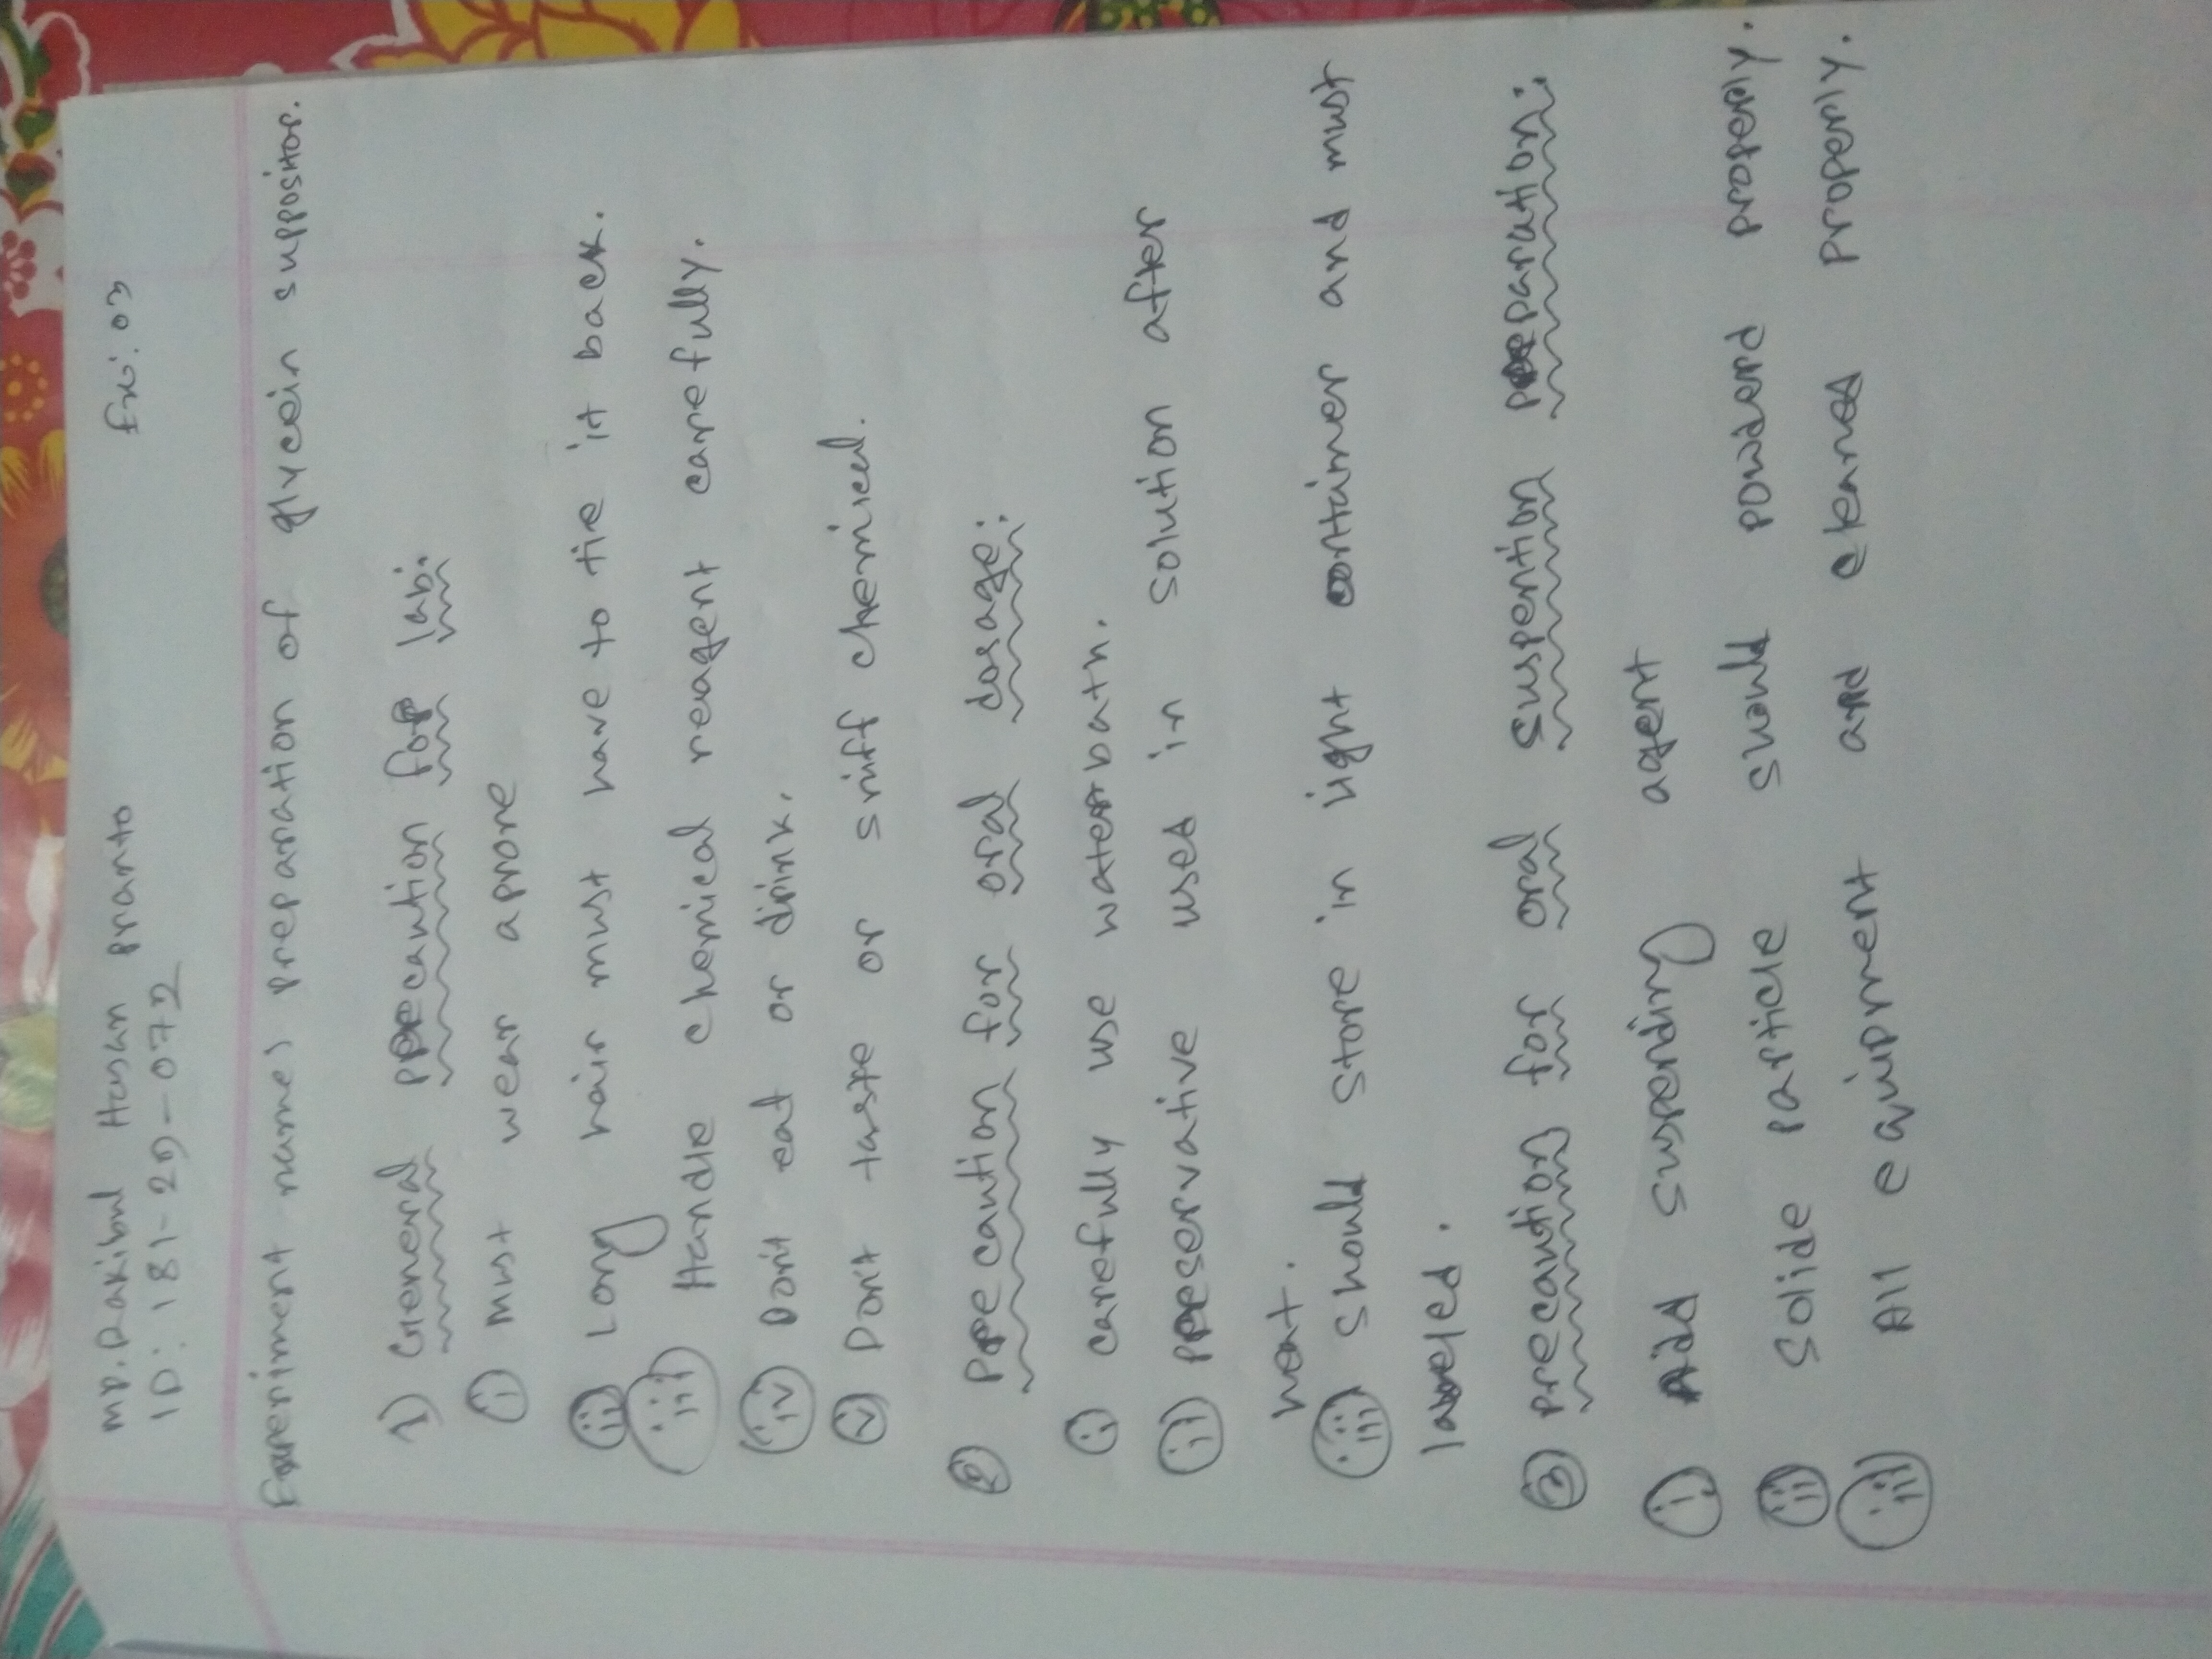 MD. Rakibul Hasan pranto
Ex: 03
ID: 181-29-072
Experiment name: preparation of glycein suppositor.
1) General precaution for lab:
(i) Must wear aprone
(ii) Long hair must have to tie it back.
(iii) Handle chemical reagent carefully.
(iv) Don't eat or drink.
(v) Don't taste or sniff chemical.
(2) Precaution for oral dosage:
(i) carefully use waterbath.
(ii) preservative used in solution after
heat.
(iii) should store in light container and must
labeled.
(3) precaution for oral suspention preparation:
(i) Add suspending agent
(ii) Solide particle should powderd properly.
(iii) All equipment and cleaned properly.